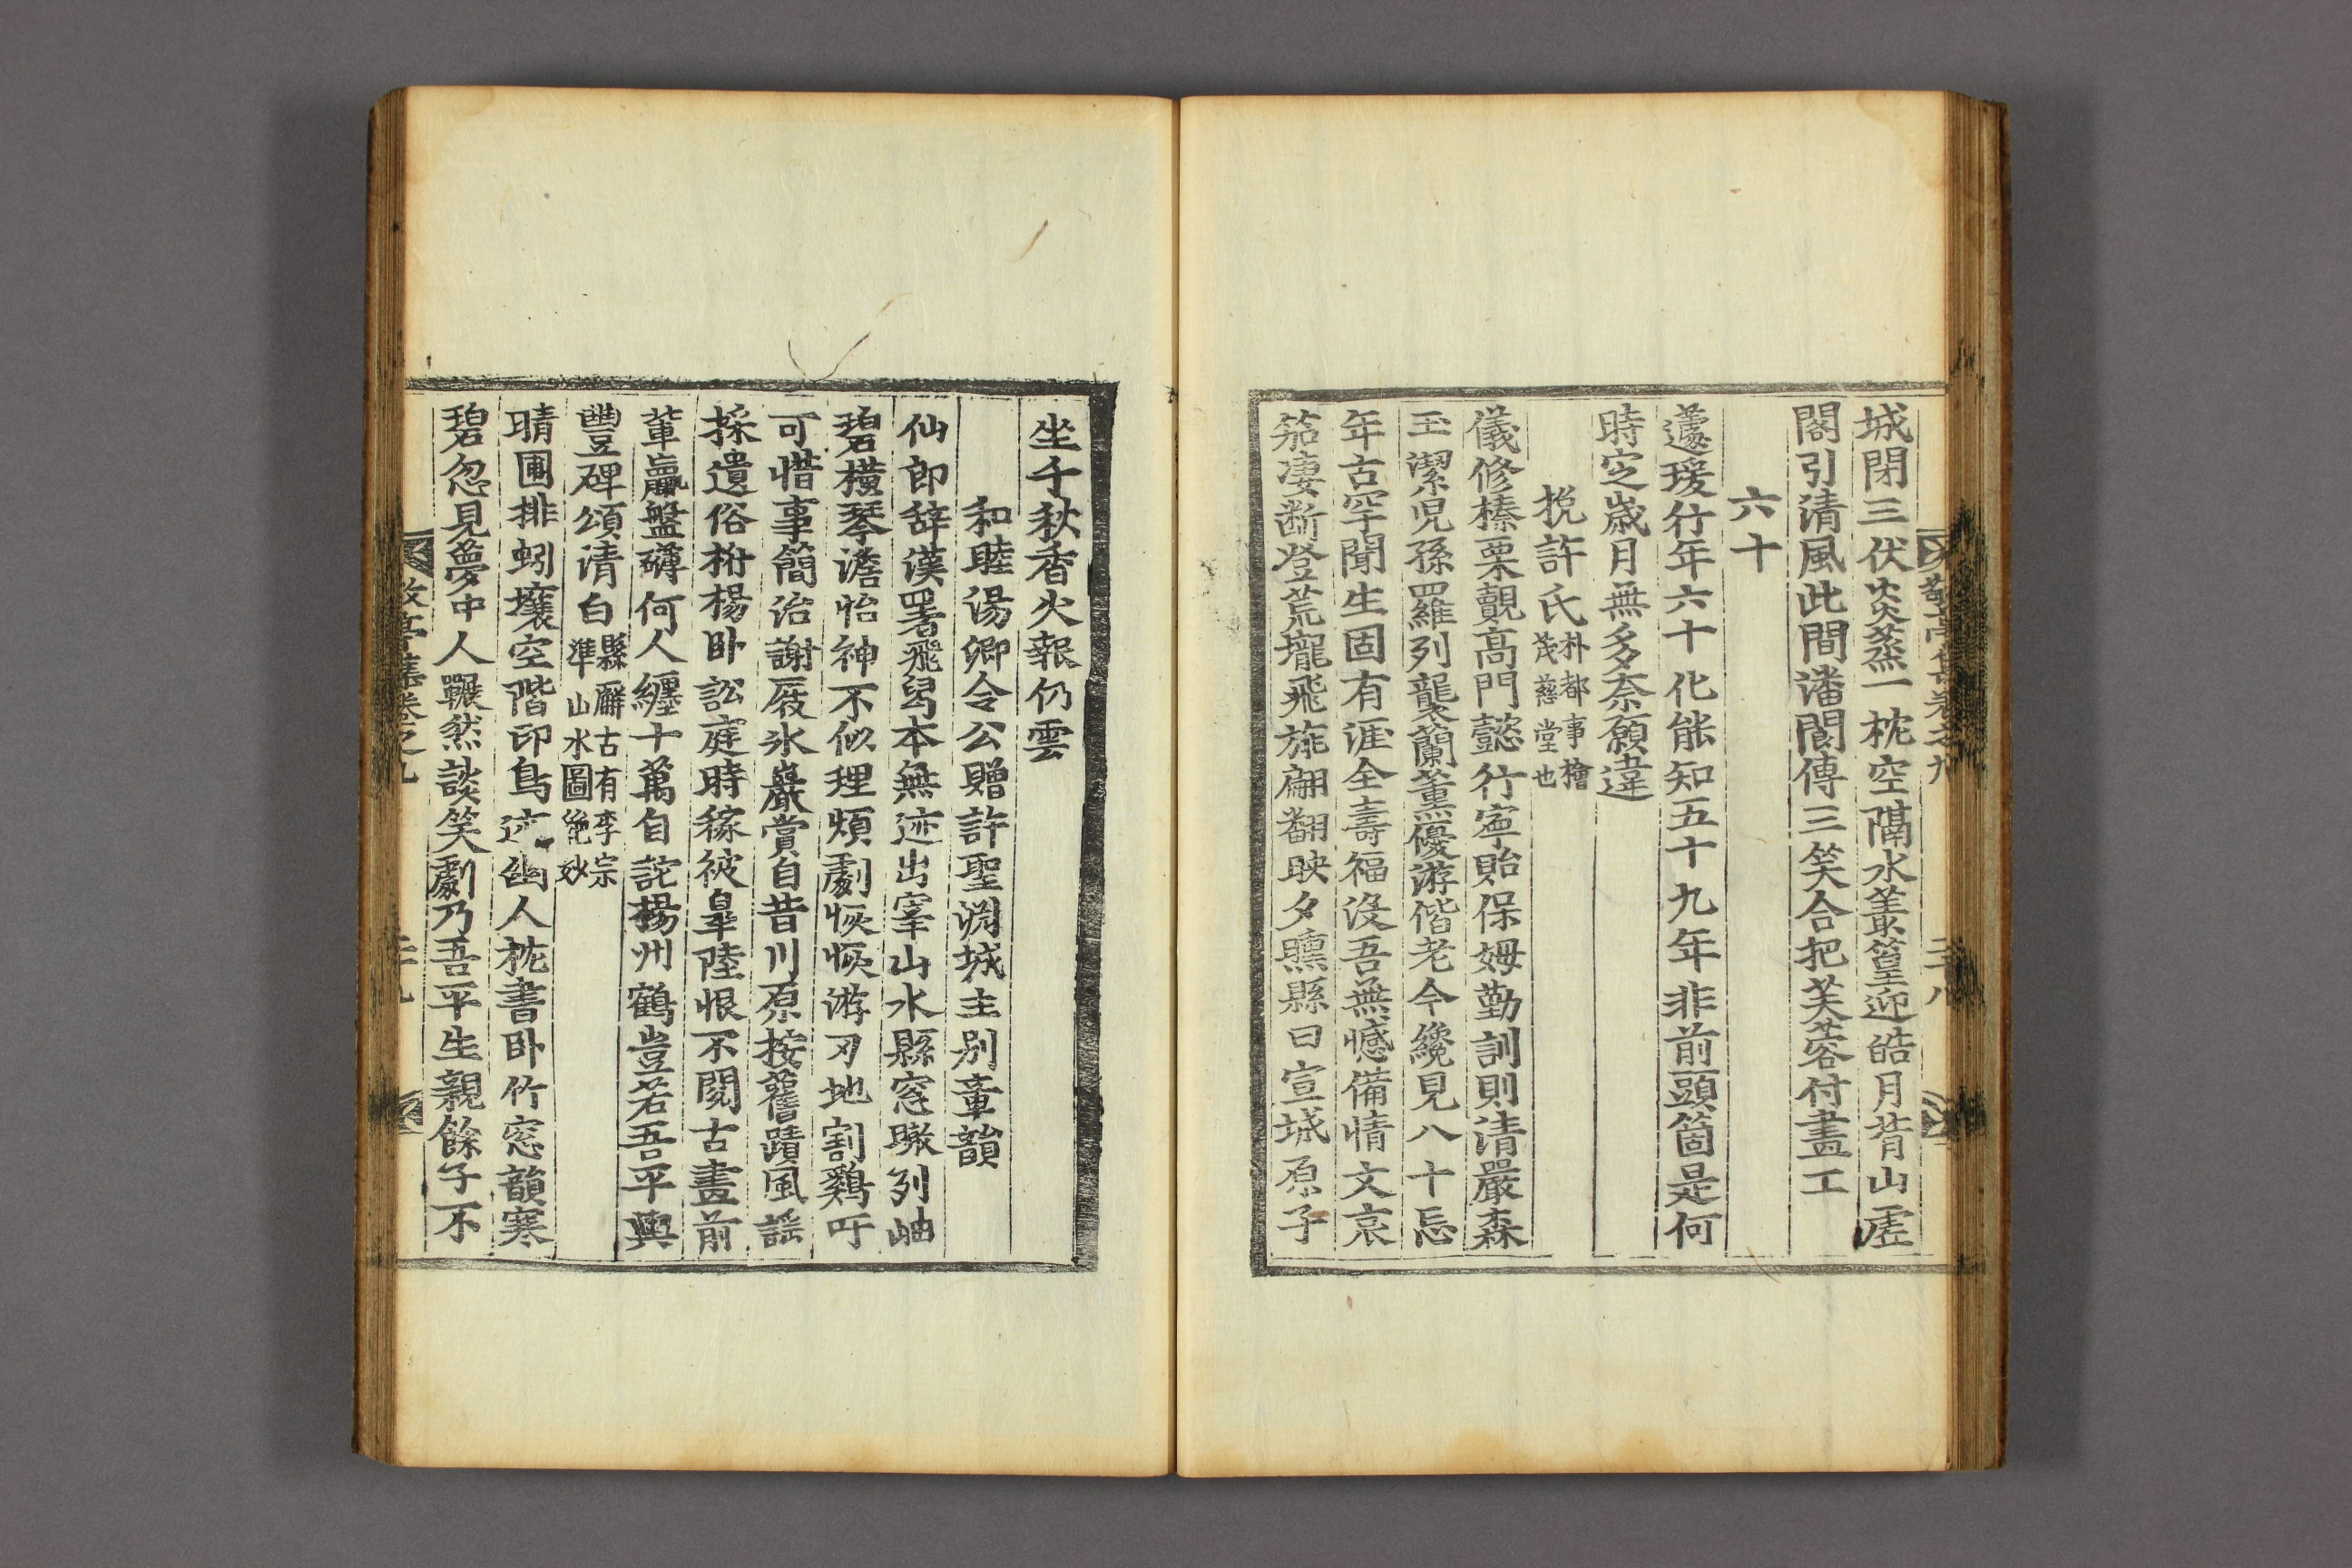 城閉三伏炎蒸一枕空隔水叢篁迎皓月背山虛
閣引清風此間潘閬傳三笑合把芙蓉付畫工
六十
蘧瑗行年六十化能知五十九年非前頭箇是何
時定歲月無多奈願違
挽許氏朴都事檜
茂慈堂也
儀修榛栗覿高門懿行寧貽保姆勤訓則清嚴森
玉潔兒孫羅列襲蘭薰優游偕老今纔見八十忘
年古罕聞生固有涯全壽福沒吾無憾備情文哀
笳凄斷登荒壠飛旐翩翻映夕曛縣曰宣城原子
敬亭集卷之九
二十八
坐千秋香火報仍雲
和睦湯卿令公贈許聖淵城主別章韻
仙郎辭漢署飛舃本無迹出宰山水縣窓墩列岫
碧橫琴澹怡神不似理煩劇恢恢游刃地割鷄吁
可惜事簡治謝屐氷巖賞自昔川原按舊蹟風謠
採遺俗桁楊卧訟庭時稼被皐陸恨不閱古畫前
輩贏盤礴何人纏十萬自詫楊州鶴豈若吾平輿
豐碑頌清白縣廨古有李宗
準山水圖絶妙
晴圃排蚓壤空階印鳥迹幽人枕書卧竹窓韻寒
碧忽見夢中人囅然談笑劇乃吾平生親餘子不
敬亭集卷之九
二十九